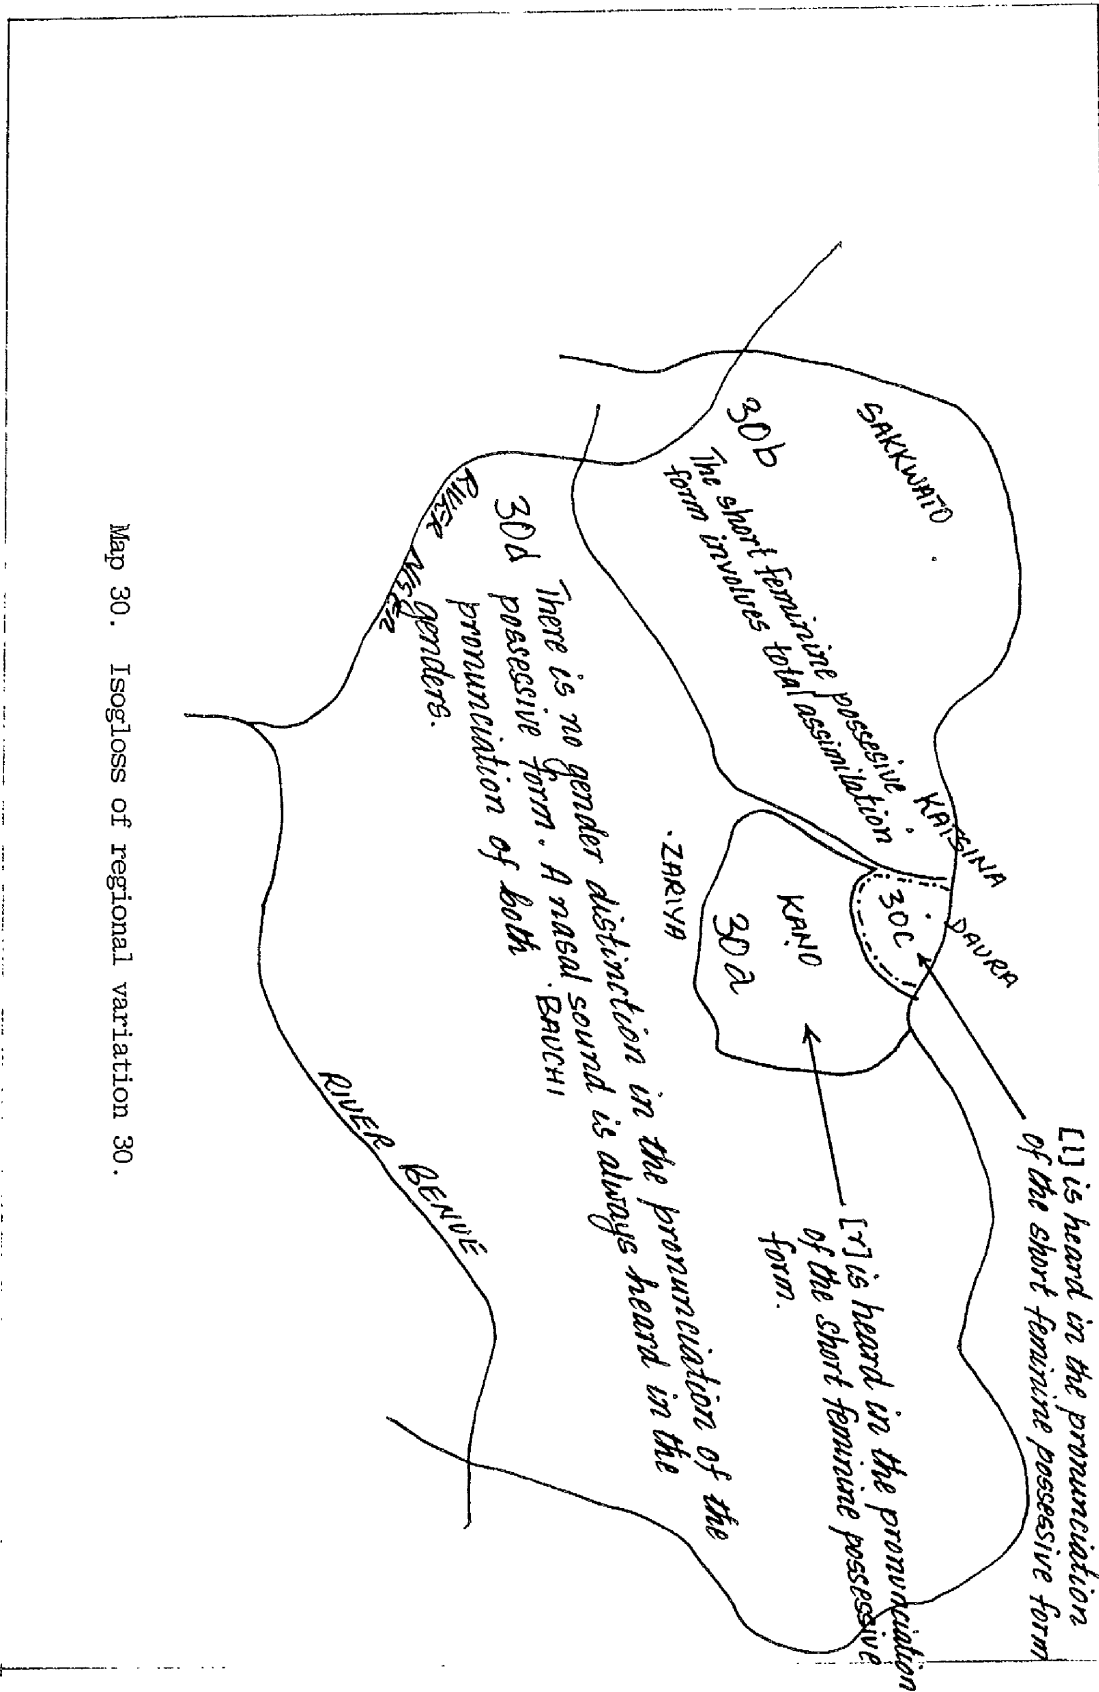 [l] is heard in the pronunciation
of the short feminine possessive form
[r] is heard in the pronunciation
of the short feminine possessive
form.
SAKKWATO
KATSINA
DAURA
30c
KANO
30a
30b
The short feminine possesive
form involves total assimilation
ZARIYA
30d There is no gender distinction in the pronunciation of the
possessive form. A nasal sound is always heard in the
pronunciation of both
genders.
BAUCHI
RIVER NIGER
RIVER BENUE
Map 30. Isogloss of regional variation 30.